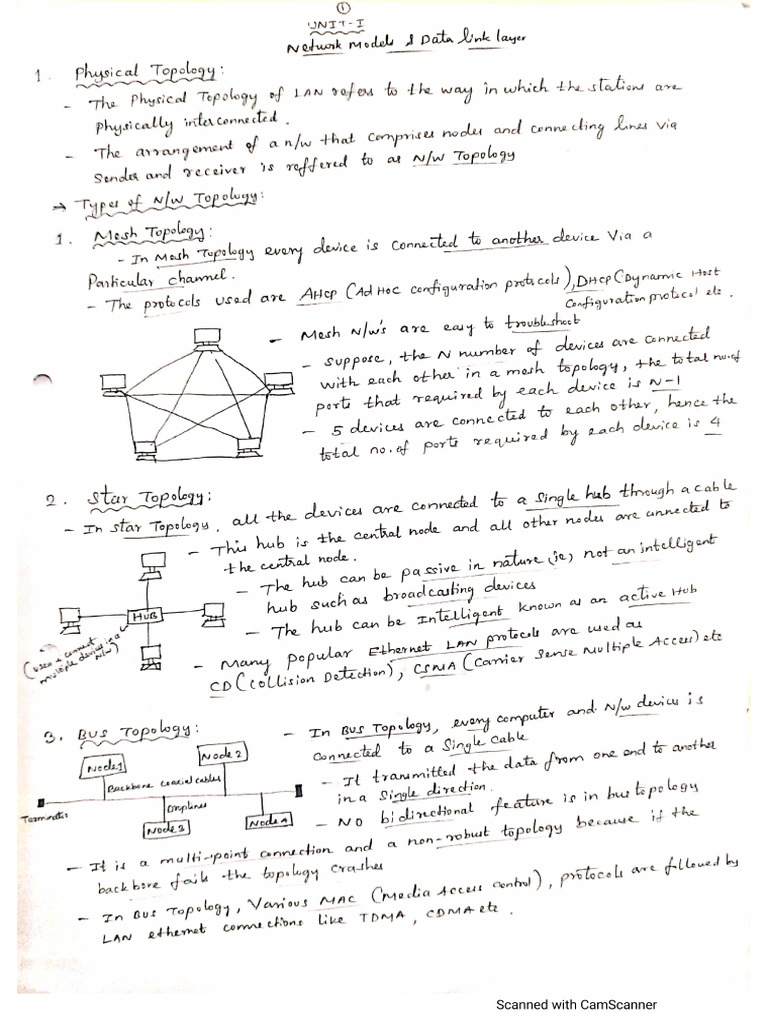 1
UNIT-I
Network Models & Data link layer
1. Physical Topology:
- The Physical Topology of LAN refers to the way in which the stations are
physically interconnected.
- The arrangement of a n/w that comprises nodes and connecting lines via
sender and receiver is reffered to as N/W Topology
→ Types of N/W Topology:
1. Mesh Topology:
- In Mesh Topology every device is connected to another device via a
Particular channel.
- The protocols used are AHCP (Ad Hoc configuration protocols), DHCP (Dynamic Host
Configuration protocol etc.
- Mesh N/w's are easy to troubleshoot
- suppose, the N number of devices are connected
with each other in a mesh topology, the total no.of
ports that required by each device is N-1
- 5 devices are connected to each other, hence the
total no.of ports required by each device is 4
2. Star Topology:
- In star Topology, all the devices are connected to a single hub through a cable
- This hub is the central node and all other nodes are connected to
the central node.
- The hub can be passive in nature (ie) not an intelligent
hub such as broadcasting devices
- The hub can be Intelligent known as an active Hub
- Many popular Ethernet LAN protocols are used as
CD (Collision Detection), CSMA (Carrier Sense Multiple Access) etc
HUB
(used to connect
multiple devices in a
N/W)
3. BUS Topology:
- In Bus Topology, every computer and N/w device is
connected to a single Cable
- It transmitted the data from one end to another
in a single direction.
- NO bidirectional feature is in bus topology
Node1
Node 2
Backbone coaxial cables
Droplines
Terminator
Node 3
Node 4
- It is a multi-point connection and a non-robust topology because if the
backbone fails the topology crashes
- In Bus Topology, Various MAC (Media Access Control), protocols are followed by
LAN ethernet connections like TDMA, CDMA etc.
Scanned with CamScanner